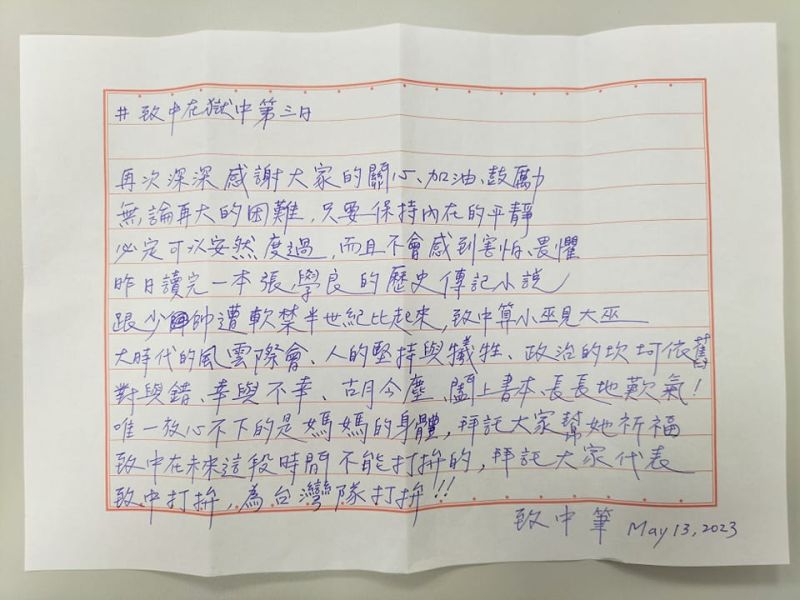 #致中在獄中第三日
再次深深感謝大家的關心、加油、鼓勵
無論再大的困難，只要保持內在的平靜
必定可以安然度過，而且不會感到害怕、畏懼
昨日讀完一本張學良的歷史傳記小說
跟少帥遭軟禁半世紀比起來，致中算小巫見大巫
大時代的風雲際會、人的堅持與犧牲、政治的坎坷依舊
對與錯、幸與不幸、古月今塵、闔上書本、長長地歎氣！
唯一放心不下的是媽媽的身體，拜託大家幫她祈福
致中在未來這段時間不能打拚的，拜託大家代表
致中打拚，為台灣隊打拚！！
致中筆 May 13, 2023